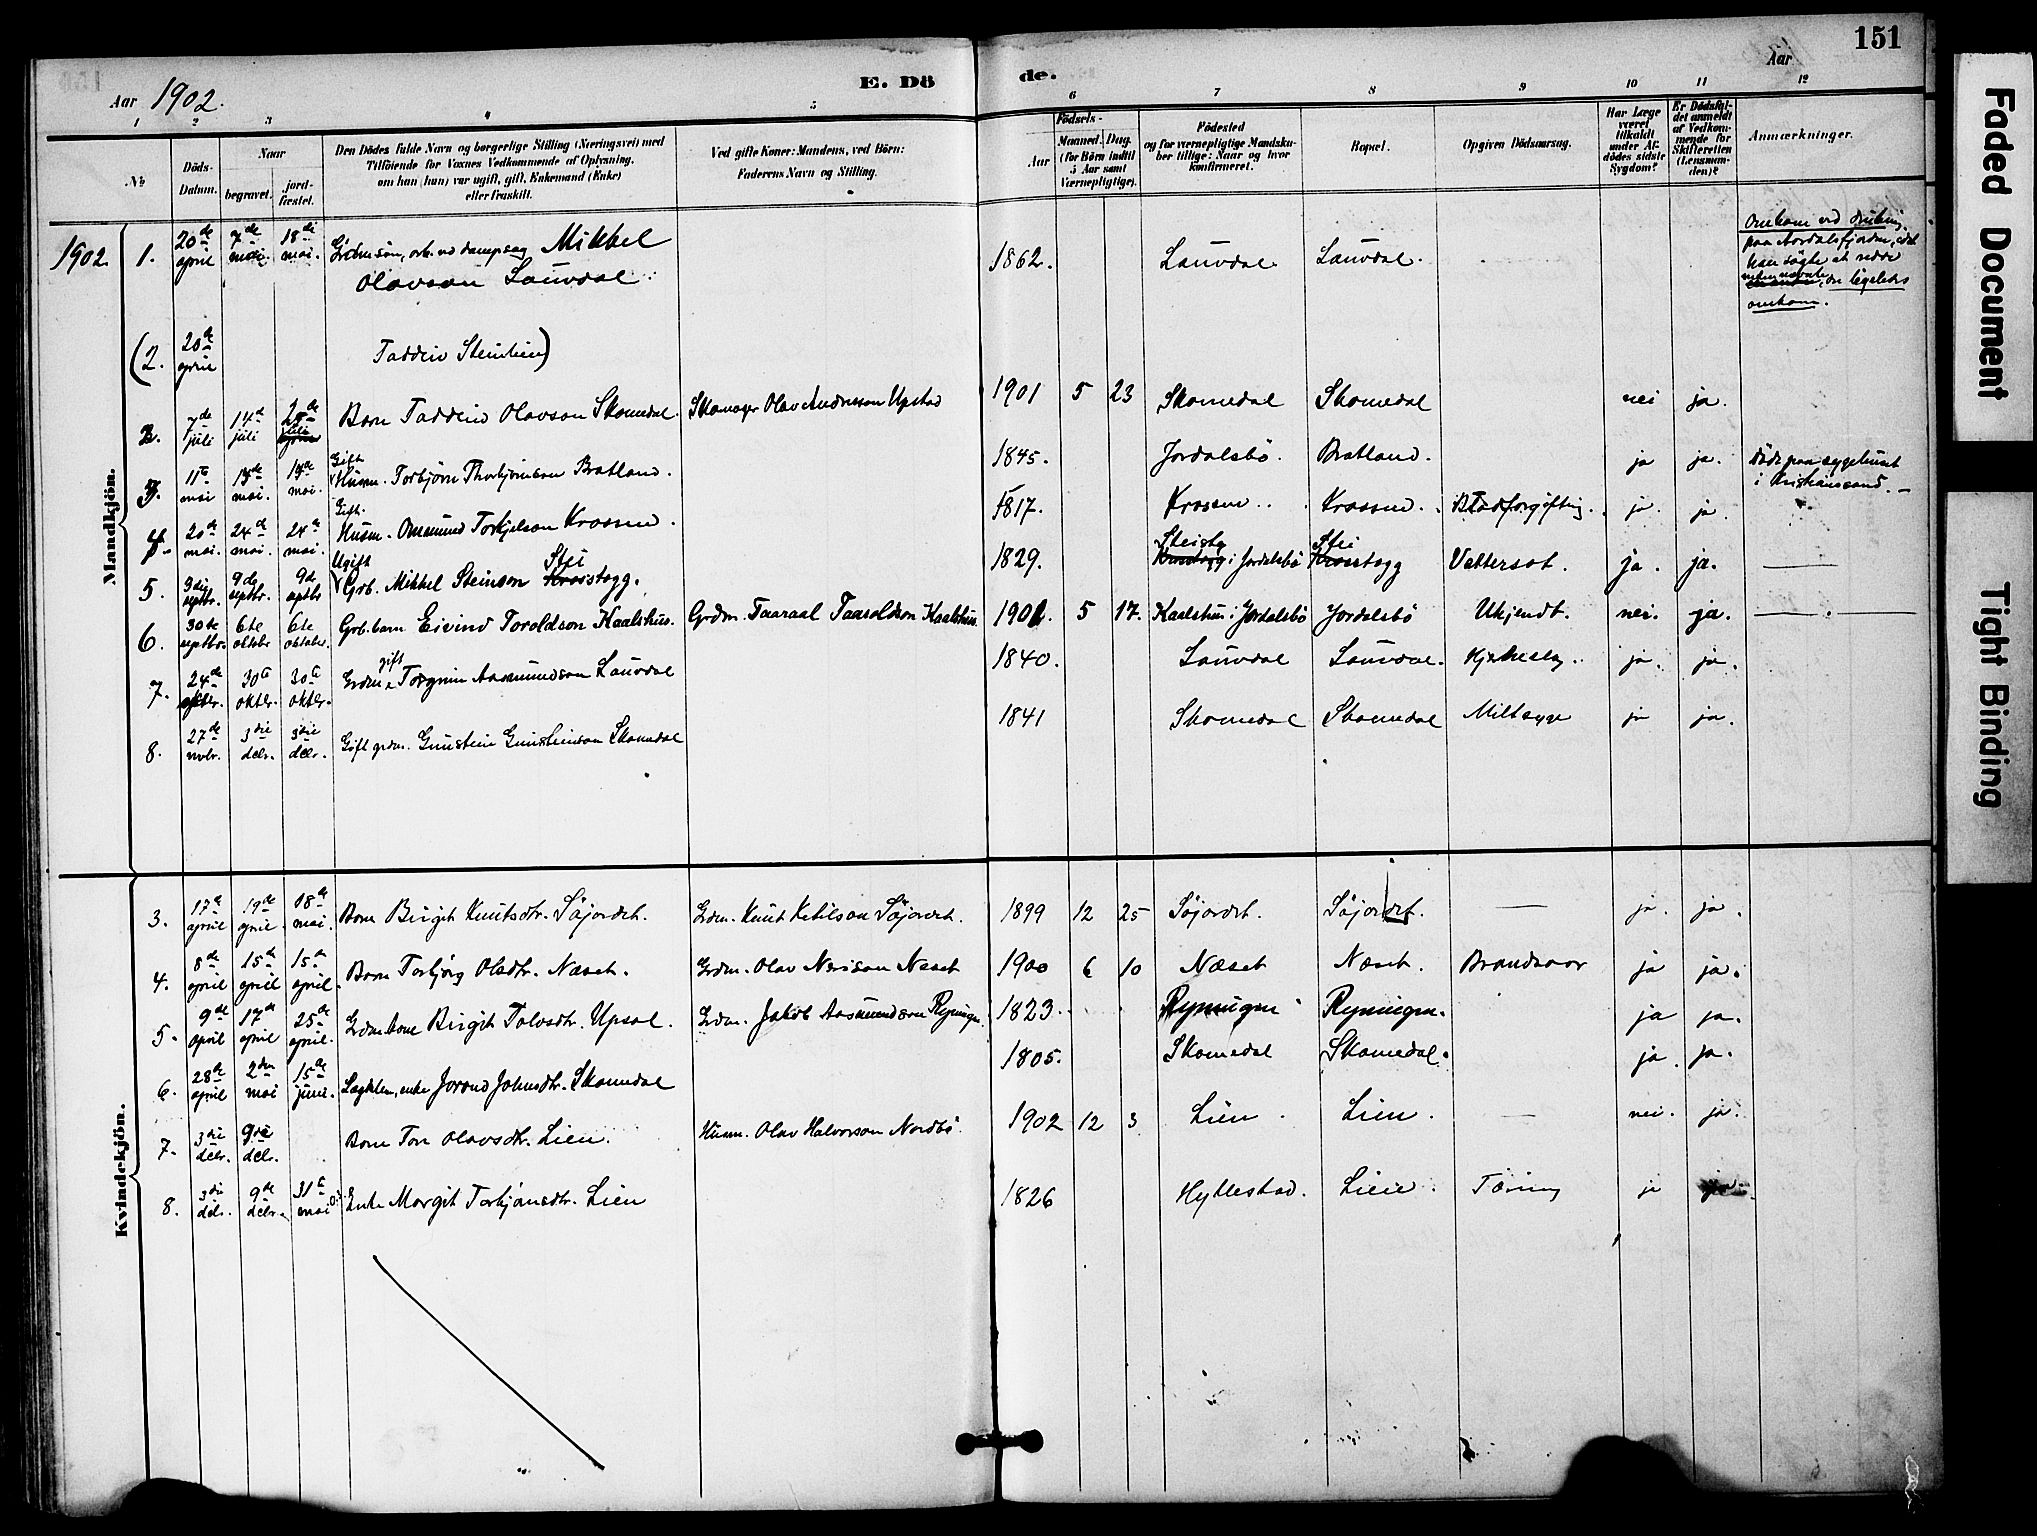 151
Aar 1902.
E. Dö
de.
Aar
1 2 3 4 5 6 7 8 9 10 11 12
No
Döds-Datum.
Naar
begravet.
jord-fæstet.
Den Dödes fulde Navn og borgerlige Stilling (Næringsvei) med
Tilföiende for Voxnes Vedkommende af Oplysning,
om han (hun) var ugift, gift, Enkemand (Enke)
eller fraskilt.
Ved gifte Koner: Mandens, ved Börn:
Faderens Navn og Stilling.
Födsels-
Aar
Maaned. Dag.
(for Börn indtil
5 Aar samt
Værnepligtige).
Födested
og for værnepligtige Mandska-
ber tillige: Naar og hvor
konfirmeret.
Bopæl.
Opgiven Dödsaarsag.
Har Læge
været
tilkaldt
under Af-
dödes sidste
Sygdom?
Er Dödsfal-
det anmeldt
af Vedkom-
mende for
Skifteretten
(Lensman-
den)?
Anmærkninger.
Mandkjön.
1902. 1. 20de april 7de mai. 18de mai. Grdmsön, arb. ved dampsag Mikkel
Olavson Lauvdal. 1862. Lauvdal Lauvdal.
Omkom ved
paa Aardalsfjorden, idet
han søgte at redde
der ligeledes
omkom.
(2. 20de april Taddeiv Steinlein)
2. 7de juli 14d juli juli Barn Taddeiv Olavson Skomedal. Skomager Olav Andresson Upstad 1901 5 23 Skomedal Skomedal nei ja.
3. 11te mai mai. mai. Gift Husm. Torbjörn Thorbjörnson Bratland. 1845. Jordalsbö. Bratland. ja ja. Döde paa sygehuset
i Kristianssand.
4. 20de mai. 24de mai. 24de mai. Gift. Husm. Omsmund Torkjelson Krossen. 1817. Krossen. Krossen. Blodforgiftning. ja. ja.
5. 9die septbr. 9de septbr. 9de septbr Ugift Grb. Mikkel Steinson Krosstogg. Stei 1829. i Jordalsbö Krosstogg Stei Vattersot. ja. ja.
6. 30te septbr. 6te oktobr 6te oktober. Grb. barn Eivind Toroldson Kaalshus. Grdm. Taaraal Taaraldson Kaalshus. 1901. 5 17. Kaalshus i Jordalsbö Jordalsbö Ukjendt. nei. ja.
7. 24de oktbr. 30te oktbr. 30te oktbr. Grdm. gift Torgrim Aasmundson Lauvdal 1840. Lauvdal Lauvdal. ja. ja.
8. 27de novbr. 3die decbr. 3die decbr. Gift grdm. Gunstein Gunsteinson Skomedal 1841 Skomedal Skomedal Miltsyge ja ja.
Kvindekjön.
3. 17de april 19de april 18de mai. Barn Birgit Knutsdtr. Söjordet. Grdm. Knut Ketilson Söjordet. 1899 12 25 Söjordet. Söjordet. ja. ja.
4. 8de april 15de april 15de april. Barn Torbjörg Olsdtr. Næset. Grdm. Olav Nerison Næset 1900 6 10 Næset Næset. Brandsaar ja ja.
5. 9de april 17de april 25de april. Grdm.kone Birgit Talvsdtr. Upsal. Grdm. Jakob Aasmundson Rymingen. 1823. Rymingen Rymingen. ja ja.
6. 28de april 2den mai 15de juni. Lægdslem, enke Jorond Johnsdtr. Skomedal 1805. Skomedal Skomedal. ja. ja.
7. 3die decbr. 9de decbr. Barn Ton Olavsdtr. Lien. Husm. Olav Halvorson Nordbö. 1902 12 3 Lien Lien. nei. ja.
8. 3die decbr. 9de decbr. 31te mai 03. Enke Margit Torbjönsdtr. Lien 1826 Hyllestad. Lien. Tæring ja ja.
Faded Document
Tight Binding